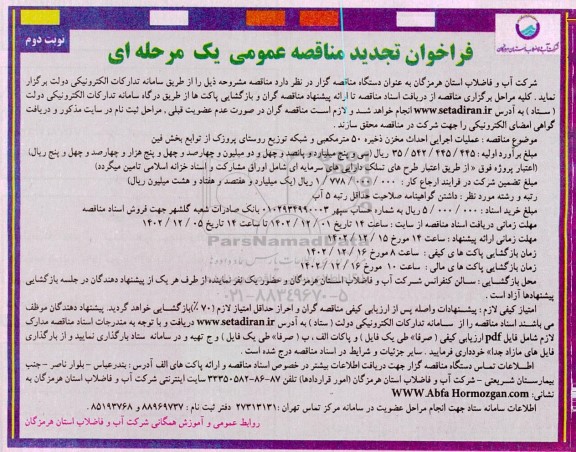 نوبت دوم
فراخوان تجدید مناقصه عمومی یک مرحله ای
شرکت آب و فاضلاب استان هرمزگان
شرکت آب و فاضلاب استان هرمزگان به عنوان دستگاه مناقصه گزار در نظر دارد مناقصه مشروحه ذیل را از طریق سامانه تدارکات الکترونیکی دولت برگزار
نماید . کلیه مراحل برگزاری مناقصه از دریافت اسناد مناقصه تا ارائه پیشنهاد مناقصه گران و بازگشایی پاکت ها از طریق درگاه سامانه تدارکات الکترونیکی دولت
( ستاد ) به آدرس www.setadiran.ir انجام خواهد شد و لازم است مناقصه گران در صورت عدم عضویت قبلی ، مراحل ثبت نام در سایت مذکور و دریافت
گواهی امضای الکترونیکی را جهت شرکت در مناقصه محقق سازند .
موضوع مناقصه : عملیات اجرایی احداث مخزن ذخیره ۵۰ مترمکعبی و شبکه توزیع روستای پروزک از توابع بخش فین
مبلغ برآورد اولیه: ۴۴۵/ ۴۴۵/ ۵۴۲/ ۳۵ ریال (سی و پنج میلیارد و پانصد و چهل و دو میلیون و چهارصد و چهل و پنج هزار و چهارصد و چهل و پنج ریال)
(اعتبار پروژه فوق « از طریق اعتبار طرح های تملک دارایی های سرمایه ای شامل اوراق مشارکت و اسناد خزانه اسلامی تامین میگردد)
مبلغ تضمین شرکت در فرایند ارجاع کار : ۰۰۰/ ۰۰۰/ ۷۷۸/ ۱ ریال (یک میلیارد و هفتصد و هفتاد و هشت میلیون ریال)
رتبه و رشته مورد نظر : داشتن گواهینامه صلاحیت حداقل رتبه ۵ آب
مبلغ خرید اسناد : ۰۰۰/ ۰۰۰/ ۵ ریال به شماره حساب سپهر ۰۱۰۲۹۳۴۹۹۰۰۰۳ بانک صادرات شعبه گلشهر جهت فروش اسناد مناقصه
مهلت زمانی دریافت اسناد مناقصه از سایت : ساعت ۱۴ تاریخ ۰۱/ ۱۲/ ۱۴۰۲ تا ساعت ۱۴ تاریخ ۰۵/ ۱۲/ ۱۴۰۲
مهلت زمانی ارائه پیشنهاد : ساعت ۱۴ مورخ ۱۵/ ۱۲/ ۱۴۰۲
زمان بازگشایی پاکت های کیفی : ساعت ۸ مورخ ۱۶/ ۱۲/ ۱۴۰۲
زمان بازگشایی پاکت های مالی : ساعت ۱۰ مورخ ۱۶/ ۱۲/ ۱۴۰۲
محل بازگشایی : سالن کنفرانس شرکت آب و فاضلاب استان هرمزگان و حضور یک نفر نماینده از طرف هر یک از پیشنهاد دهندگان در جلسه بازگشایی
پیشنهادها آزاد است .
امتیاز کیفی لازم : پیشنهادات واصله پس از ارزیابی کیفی مناقصه گران و احراز حداقل امتیاز لازم (۷۰ ٪)بازگشایی خواهد گردید. پیشنهاد دهندگان موظف
می باشند اسناد مناقصه را از سامانه تدارکات الکترونیکی دولت ( ستاد ) به آدرس www.setadiran.ir دریافت و با توجه به مندرجات اسناد مناقصه مدارک
لازم شامل فایل pdf ارزیابی کیفی ( صرفا» طی یک فایل ) و پاکات الف ، ب ( صرفا» طی یک فایل ) و ج تهیه و در سامانه ستاد بارگذاری نمایید و از بارگذاری
فایل های مازاد جدا» خودداری فرمایید . سایر جزئیات و شرایط در اسناد مناقصه درج شده است .
اطلاعات تماس دستگاه مناقصه گزار جهت دریافت اطلاعات بیشتر در خصوص اسناد مناقصه و ارائه پاکت های الف آدرس : بندرعباس – بلوار ناصر – جنب
بیمارستان شریعتی – شرکت آب و فاضلاب استان هرمزگان (امور قراردادها) تلفن ۸۷-۸۶-۳۳۳۵۰۵۸۲ سایت اینترنتی شرکت آب و فاضلاب استان هرمزگان به
نشانی: WWW.Abfa Hormozgan.com
اطلاعات سامانه ستاد جهت انجام مراحل عضویت در سامانه مرکز تماس تهران :۲۷۳۱۳۱۳۱ دفتر ثبت نام : ۸۸۹۶۹۷۳۷ و ۸۵۱۹۳۷۶۸ .
روابط عمومی و آموزش همگانی شرکت آب و فاضلاب استان هرمزگان
ParsNamadData
۰۲۱-۸۸۳۴۹۶۷۰-۵